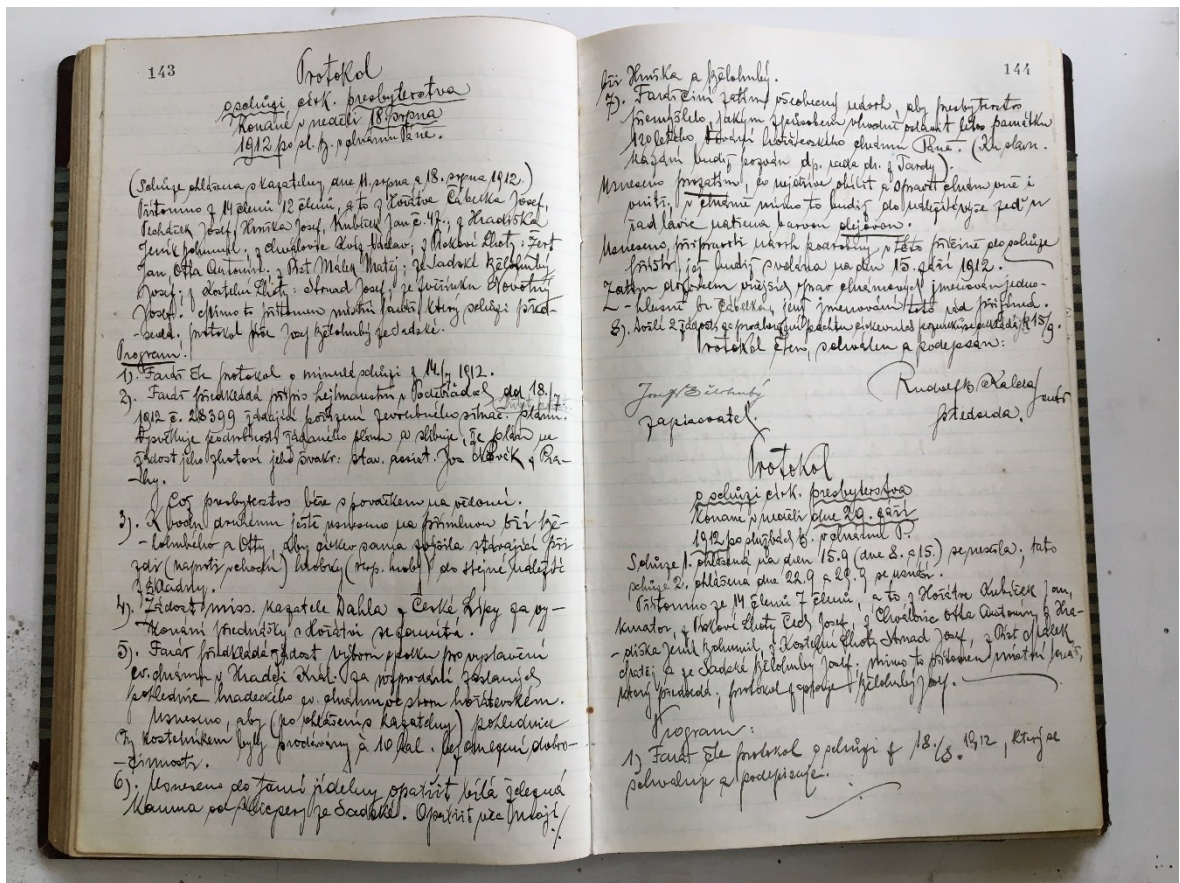 143
Protokol
o schůzi círk. presbyterstva
konané v neděli 18. srpna
1912 po sl. b. v chrámu Páně.
(Schůze ohlášena s kazatelny dne 11. srpna a 18. srpna 1912.)
Přítomno z 14 členů 12 členů, a to z Hořátve Čábelka Josef,
Pecháček Josef, Hrníka Josef, Kubíček Jan č. 47., z Hradiška
Jeník Bohumil, z Chvalovic Václav; z Pískové Lhoty: Šerý
Jan, Otta Antonín. z Píst Málek Matěj; ze Sadské Bělohubý
Josef; z Kostelní Lhoty: Strnad Josef, ze Zvěřínku Novotný
Josef. Mimo to přítomen místní farář, který schůzi před-
-sedá. protokol píše Josef Bělohubý ze Sadské.
Program.
1). Farář čte protokol o minulé schůzi z 14./7 1912.
2). Farář předkládá přípis hejtmanství v Poděbradech dto 18./7
1912 č. 28399 žádající pořízení situač. plánu.
podrobnosti žádaného plánu a slibuje, že plán na
žádost jeho zhotoví jeho švakr: stav. assist. Jos z Pra-
hy.
Což presbyterstvo béře s povděkem na vědomí.
3). K bodu druhému ještě usneseno na přímluvu bří Bě-
-lohubého a Otty, aby církev sama zdi (naproti vchodu) hrobky (resp. hroby) do stejné
4). Žádost miss. kazatele Dahla z České Lípy za vy-
-konání přednášky v Hořátvi se zamítá.
5). Farář předkládá žádost výboru spolku pro vystavění
ev. chrámu v Hradci Král. za rozprodání zaslaných
pohlednic hradeckého ev. chrámu ve sboru hořátevském.
Usneseno, aby (po ohlášení s kazatelny) pohlednice
ty kostelníkem byly prodávány à 10 hal. bez omezení dobro-
-činnosti.
6). Usneseno do farní jídelny opatřiti bílá železná
kamna od Klicpery ze Sadské. Opatřit je mají
144
bří Hrníka a Bělohubý.
7). Farář činí zatím všeobecný návrh, aby presbyterstvo
přemýšlelo, jakým způsobem vhodně oslaviti letos památku
120letého trvání hořátevského chrámu Páně. (Ku slavn.
kázání budiž pozván dp. rada dr. Tardy).
Usneseno prozatím, co nejdříve obílit a opravit chrám vně i
uvnitř. v chrámě mimo to budiž do náležité výše zeď u
řad lavic natřena barvou olejovou.
Usneseno, připraviti návrh podrobný v této příčině pro schůzi
příští, jež budiž svolána na den 15. září 1912.
Zatím dozorcem vnějších prav chrámových jmenován jedno-
-hlasně br. Čábelka, jenž jmenování toto přijímá.
8). Došlé 2 žádosti za prodloužení pachtu církevních pozemků k 15/9.
Protokol čten, schválen a podepsán:
Josef Bělohubý
zapisovatel.
Rudolf Kalda farář
předseda.
Protokol
o schůzi círk. presbyterstva
konané v neděli dne 29. září
1912 po službách b. v chrámu P.
Schůze 1. ohlášená na den 15.9 (dne 8. a 15.) se nesešla; tato
schůze 2. ohlášena dne 22.9 a 29.9
Přítomno ze 14 členů 7 členů, a to z Hořátve Kubíček Jan,
kurátor, z Pískové Lhoty Čech Josef, z Chvalovic Otta Antonín, z Hra-
-diška Jeník Bohumil, z Kostelní Lhoty Strnad Josef, z Píst Málek
Matěj a ze Sadské Bělohubý Josef. mimo to přítomen místní farář,
který předsedá; protokol zapisuje Bělohubý Josef.
Program:
1) Farář čte protokol o schůzi z 18./8. 1912, který se
schvaluje a podepisuje.